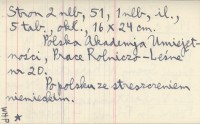 Stron 2 nlb, 51, 1 nlb, il.,
5 tab., okł., 16 x 24 cm.
Polska Akademja Umiejęt-
ności, Prace Rolniczo-Leśne
nr 20.
Po polsku ze streszczeniem
niemieckim.
WHP